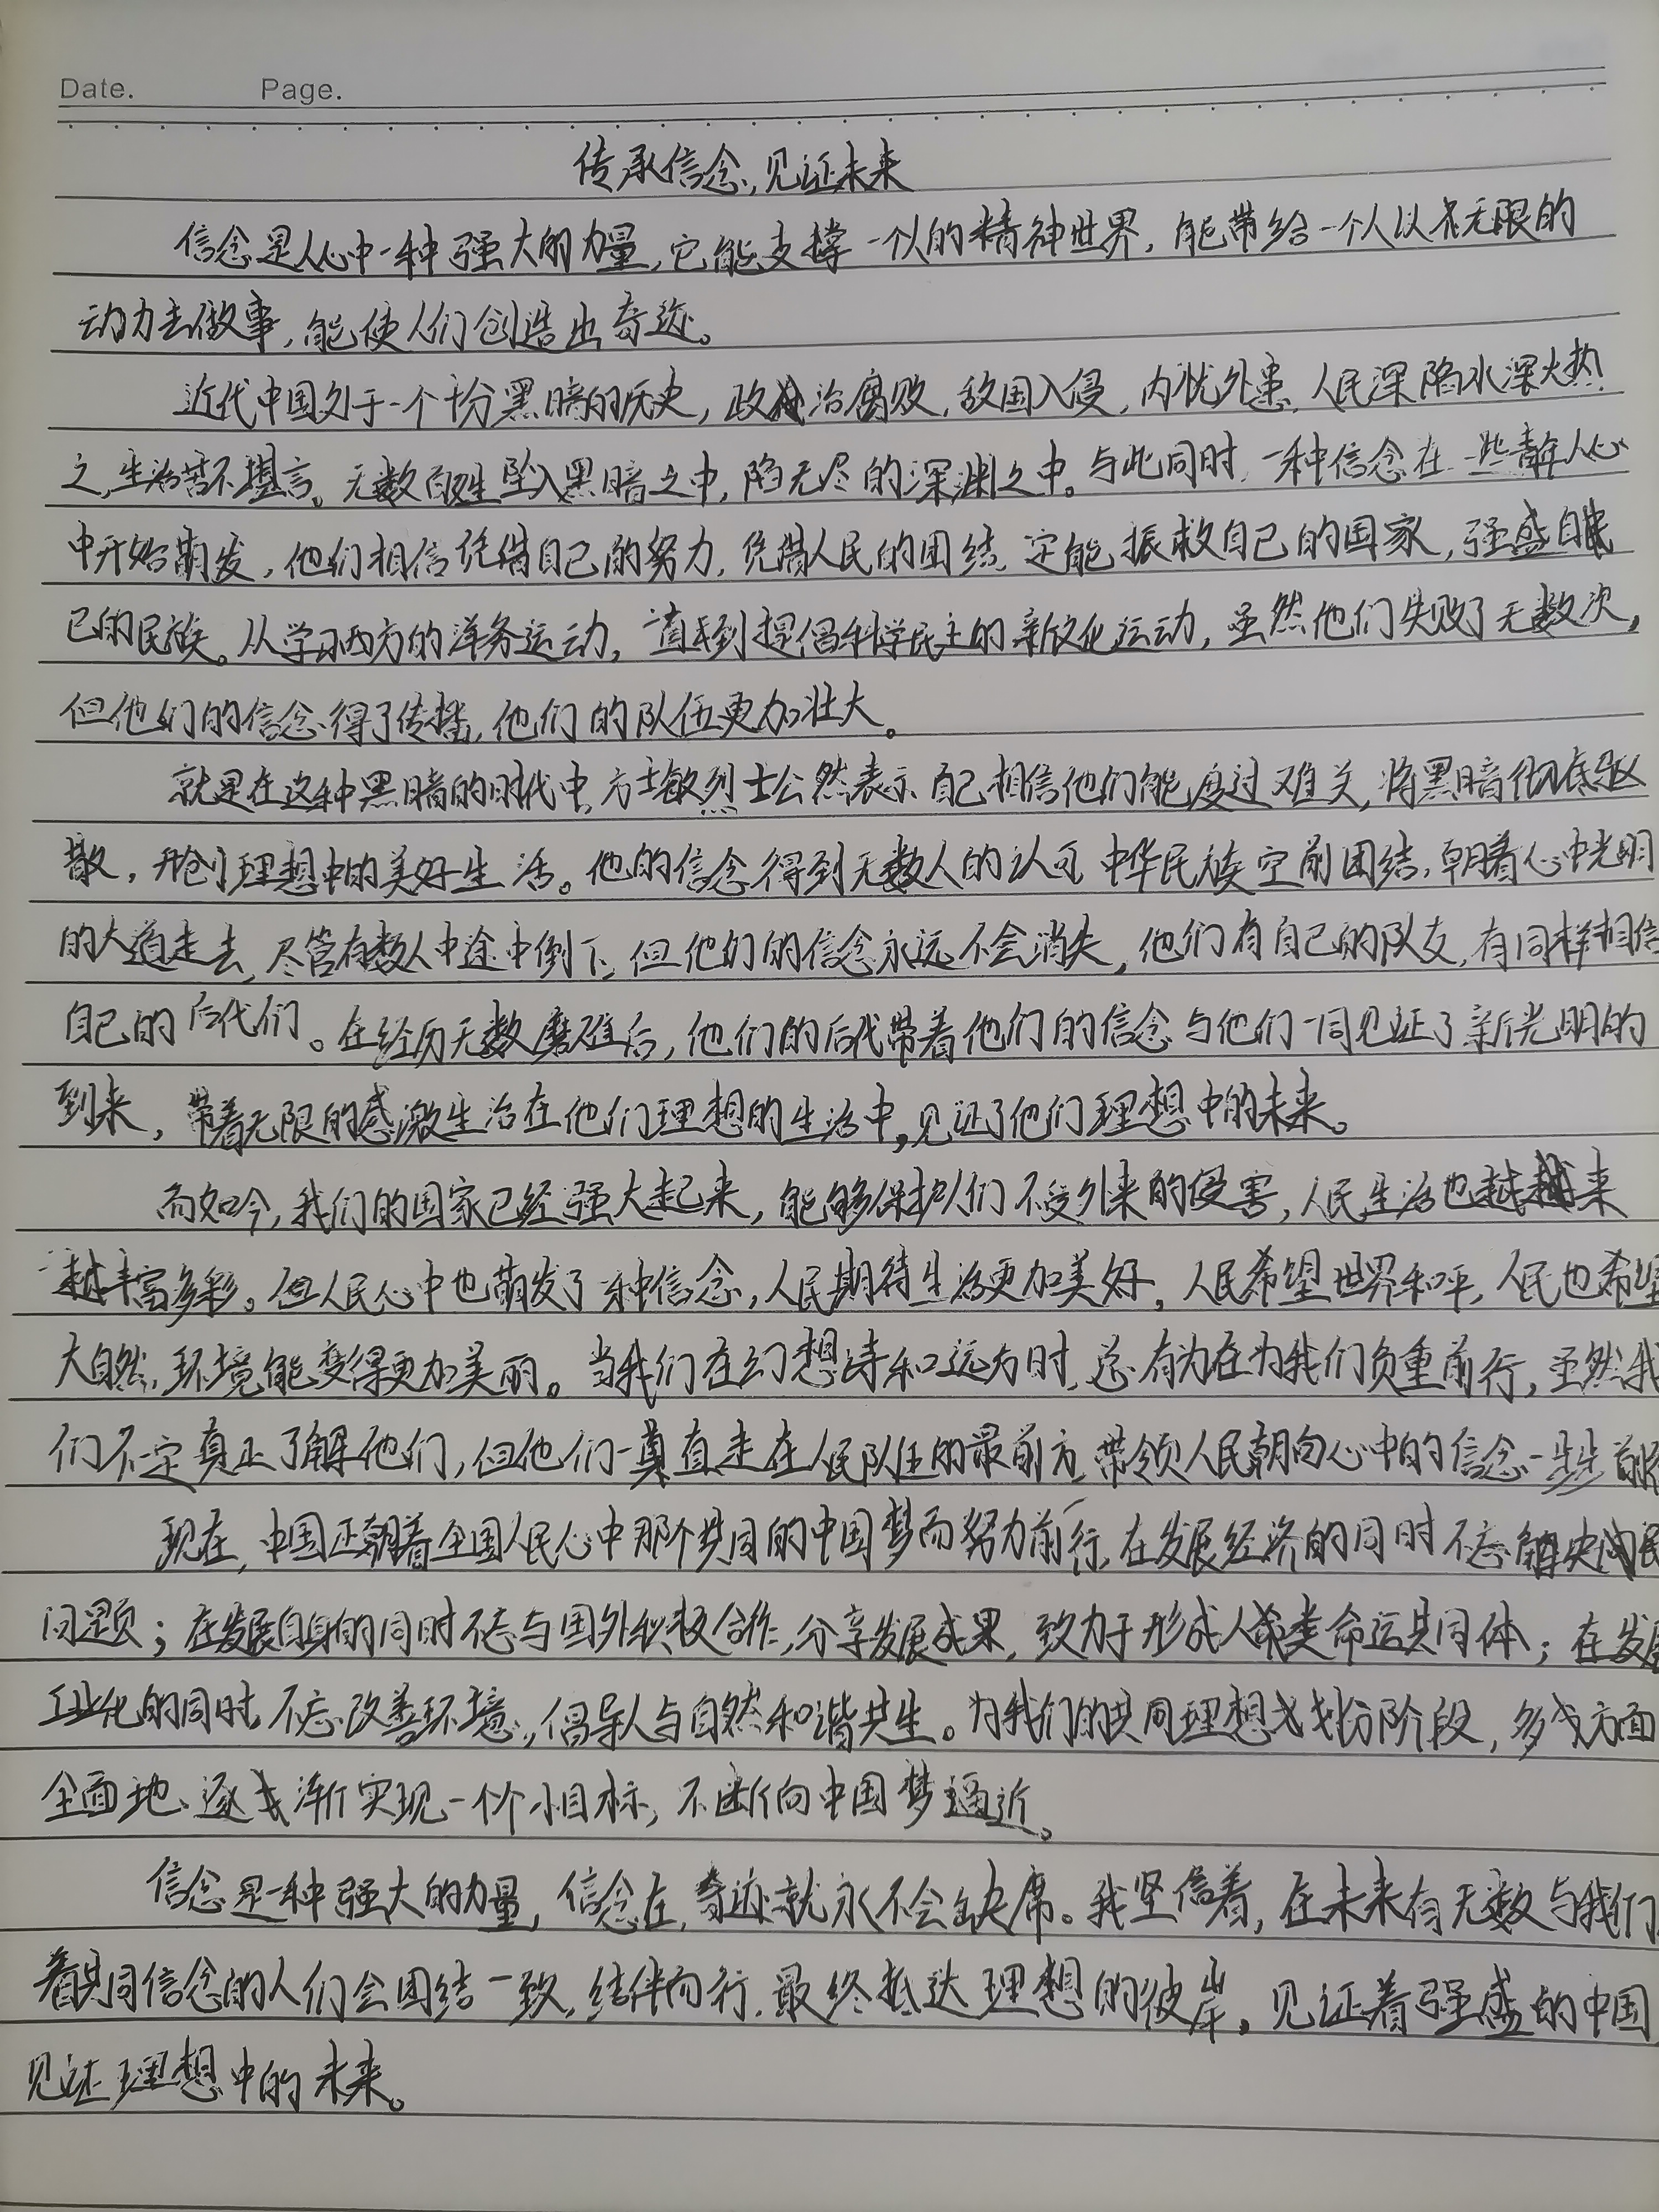 Date. Page.
传承信念,见证未来
信念是人心中一种强大的力量,它能支撑一个人的精神世界,能带给一个人以无限的
动力去做事,能使人们创造出奇迹。
近代中国处于一个十分黑暗的历史,政治腐败,敌国入侵,内忧外患,人民深陷水深火热
之,生活苦不堪言。无数百姓坠入黑暗之中,陷无尽的深渊之中。与此同时,一种信念在一些青年人心
中开始萌发,他们相信凭借自己的努力,凭借人民的团结,定能振救自己的国家,强盛自
己的民族。从学习西方的洋务运动,一直到提倡科学民主的新文化运动,虽然他们失败了无数次,
但他们的信念得了传播,他们的队伍更加壮大。
就是在这种黑暗的时代中,方志敏烈士公然表示自己相信他们能度过难关,将黑暗彻底驱
散,开创理想中的美好生活。他的信念得到无数人的认可,中华民族空前团结,朝着心中光明
的大道走去,尽管有数人中途中倒下,但他们的信念永远不会消失,他们有自己的队友,有同样相信
自己的后代们。在经历无数磨难后,他们的后代带着他们的信念与他们一同见证了新光明的
到来,带着无限的感激生活在他们理想的生活中,见证了他们理想中的未来。
而如今,我们的国家已经强大起来,能够保护人们不受外来的侵害,人民生活也越来
越丰富多彩。但人民心中也萌发了一种信念,人民期待生活更加美好,人民希望世界和平,人民也希望
大自然,环境能变得更加美丽。当我们在幻想诗和远方时,总有人在为我们负重前行,虽然我
们不一定真正了解他们,但他们一直走在人民队伍的最前方,带领人民朝向心中的信念一步步前行
现在,中国正朝着全国人民心中那个共同的中国梦而努力前行,在发展经济的同时不忘解决民
问题;在发展自身的同时不忘与国外积极合作,分享发展成果,致力于形成人类命运共同体;在发展
工业化的同时,不忘改善环境,倡导人与自然和谐共生。为我们的共同理想划分阶段,多方面
全面地、逐渐实现一个个小目标,不断向中国梦逼近。
信念是一种强大的力量,信念在,奇迹就永不会缺席。我坚信着,在未来有无数与我们
着共同信念的人们会团结一致,结伴而行,最终抵达理想的彼岸,见证着强盛的中国,
见证理想中的未来。